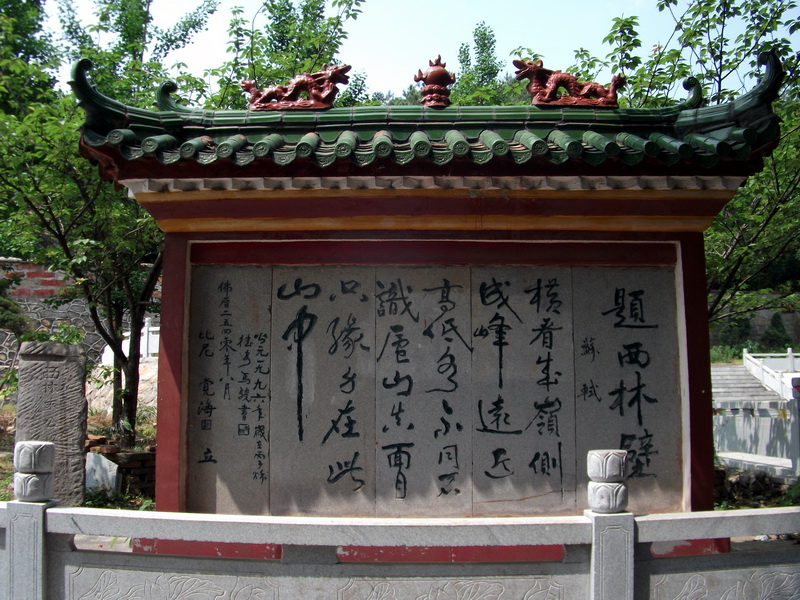 題西林壁
蘇軾
橫看成嶺側
成峰遠近
高低各不同不
識廬山真面
只緣身在此
山中
公元一九九六年歲在丙子
佛曆二五四零年八月
比丘尼覺海 立